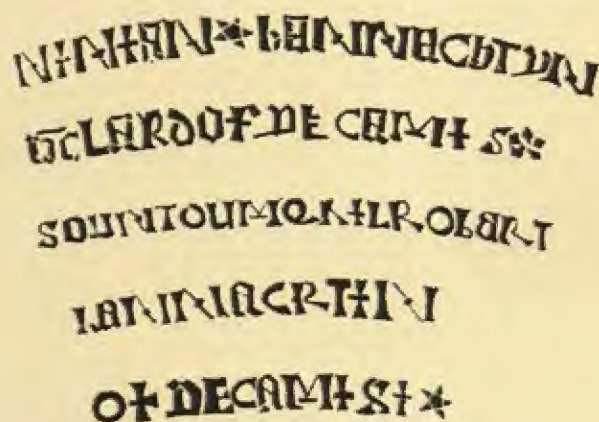 NINIAN * BANNACHTYN
LARD OF DE CAMIS *
SOUN TO UMQHIL ROBART
BANNACHTIN
OF DE CAMIS *